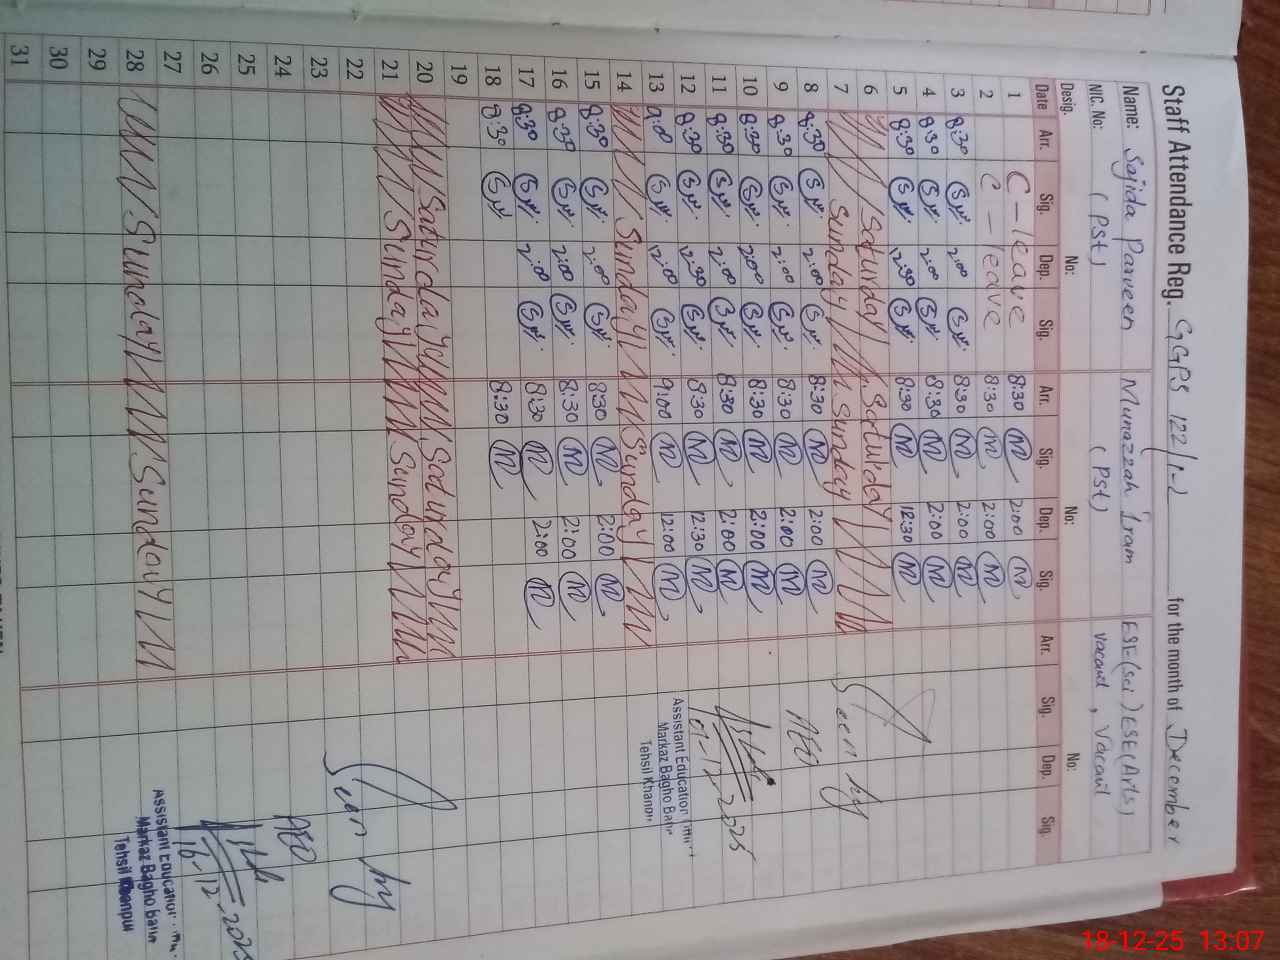 Staff Attendance Reg. GGPS 122/1-L for the month of December
Name: Sajida Parveen Munazzah Iram ESE(Sci) ESE(Arts)
NIC. No: (Pst) (Pst) Vacant, Vacant
Desig. No: No: No:
Date Arr. Sig. Dep. Sig. Arr. Sig. Dep. Sig. Arr. Sig. Dep. Sig.
1 C-leave 8:30 M 2:00 M
2 C-leave 8:30 M 2:00 M
3 8:30 2:00 8:30 M 2:00 M
4 8:30 2:00 8:30 M 2:00 M
5 8:30 12:30 8:30 M 12:30 M
6 Saturday Saturday
7 Sunday Sunday
8 8:30 2:00 8:30 M 2:00 M
9 8:30 2:00 8:30 M 2:00 M
10 8:30 2:00 8:30 M 2:00 M
11 8:30 2:00 8:30 M 2:00 M
12 8:30 12:30 8:30 M 12:30 M
13 9:00 12:00 9:00 M 12:00 M
14 Sunday Sunday
15 8:30 2:00 8:30 M 2:00 M
16 8:30 2:00 8:30 M 2:00 M
17 8:30 2:00 8:30 M 2:00 M
18 8:30 8:30 M
19
20 Saturday Saturday
21 Sunday Sunday
22
23
24
25
26
27
28 Sunday Sunday
29
30
31
Seen by
AEO
-12-2025
Assistant Education
Markaz Bagho Bahr
Tehsil Khanpur
Seen by
AEO
16-12-2025
Assistant Education
Markaz Bagho Bahr
Tehsil Khanpur
18-12-25 13:07